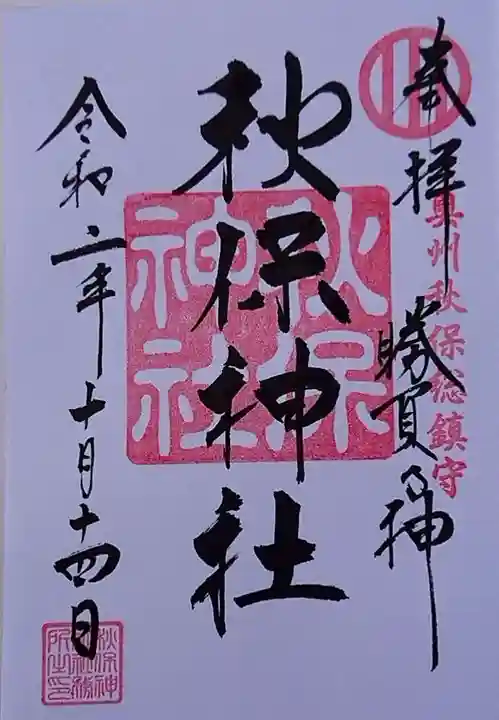 奉拝
奥州秋保総鎮守
勝負の神
秋保神社
秋保神社
令和二年十月十四日
秋保神社社務所之印